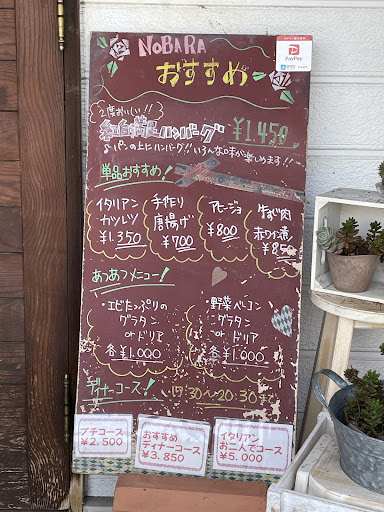 NOBARA
おすすめ
PayPay
2度おいしい!!
紅白満足ハンバーグ ¥1,450
パンの上にハンバーグ!! いろんな味が楽しめます!!
単品おすすめ!
イタリアン
カツレツ
¥1.350
手作り
唐揚げ
¥700
アヒージョ
¥800
牛すじ肉
赤ワイン煮
¥850
あつあつメニュー!
・エビたっぷりの
グラタン
or ドリア
各¥1.000
・野菜ベーコン
グラタン
or ドリア
各¥1.000
ディナーコース!
17:30〜20:30まで
プチコース
¥2.500
おすすめ
ディナーコース
¥3.850
イタリアン
お二人でコース
¥5.000